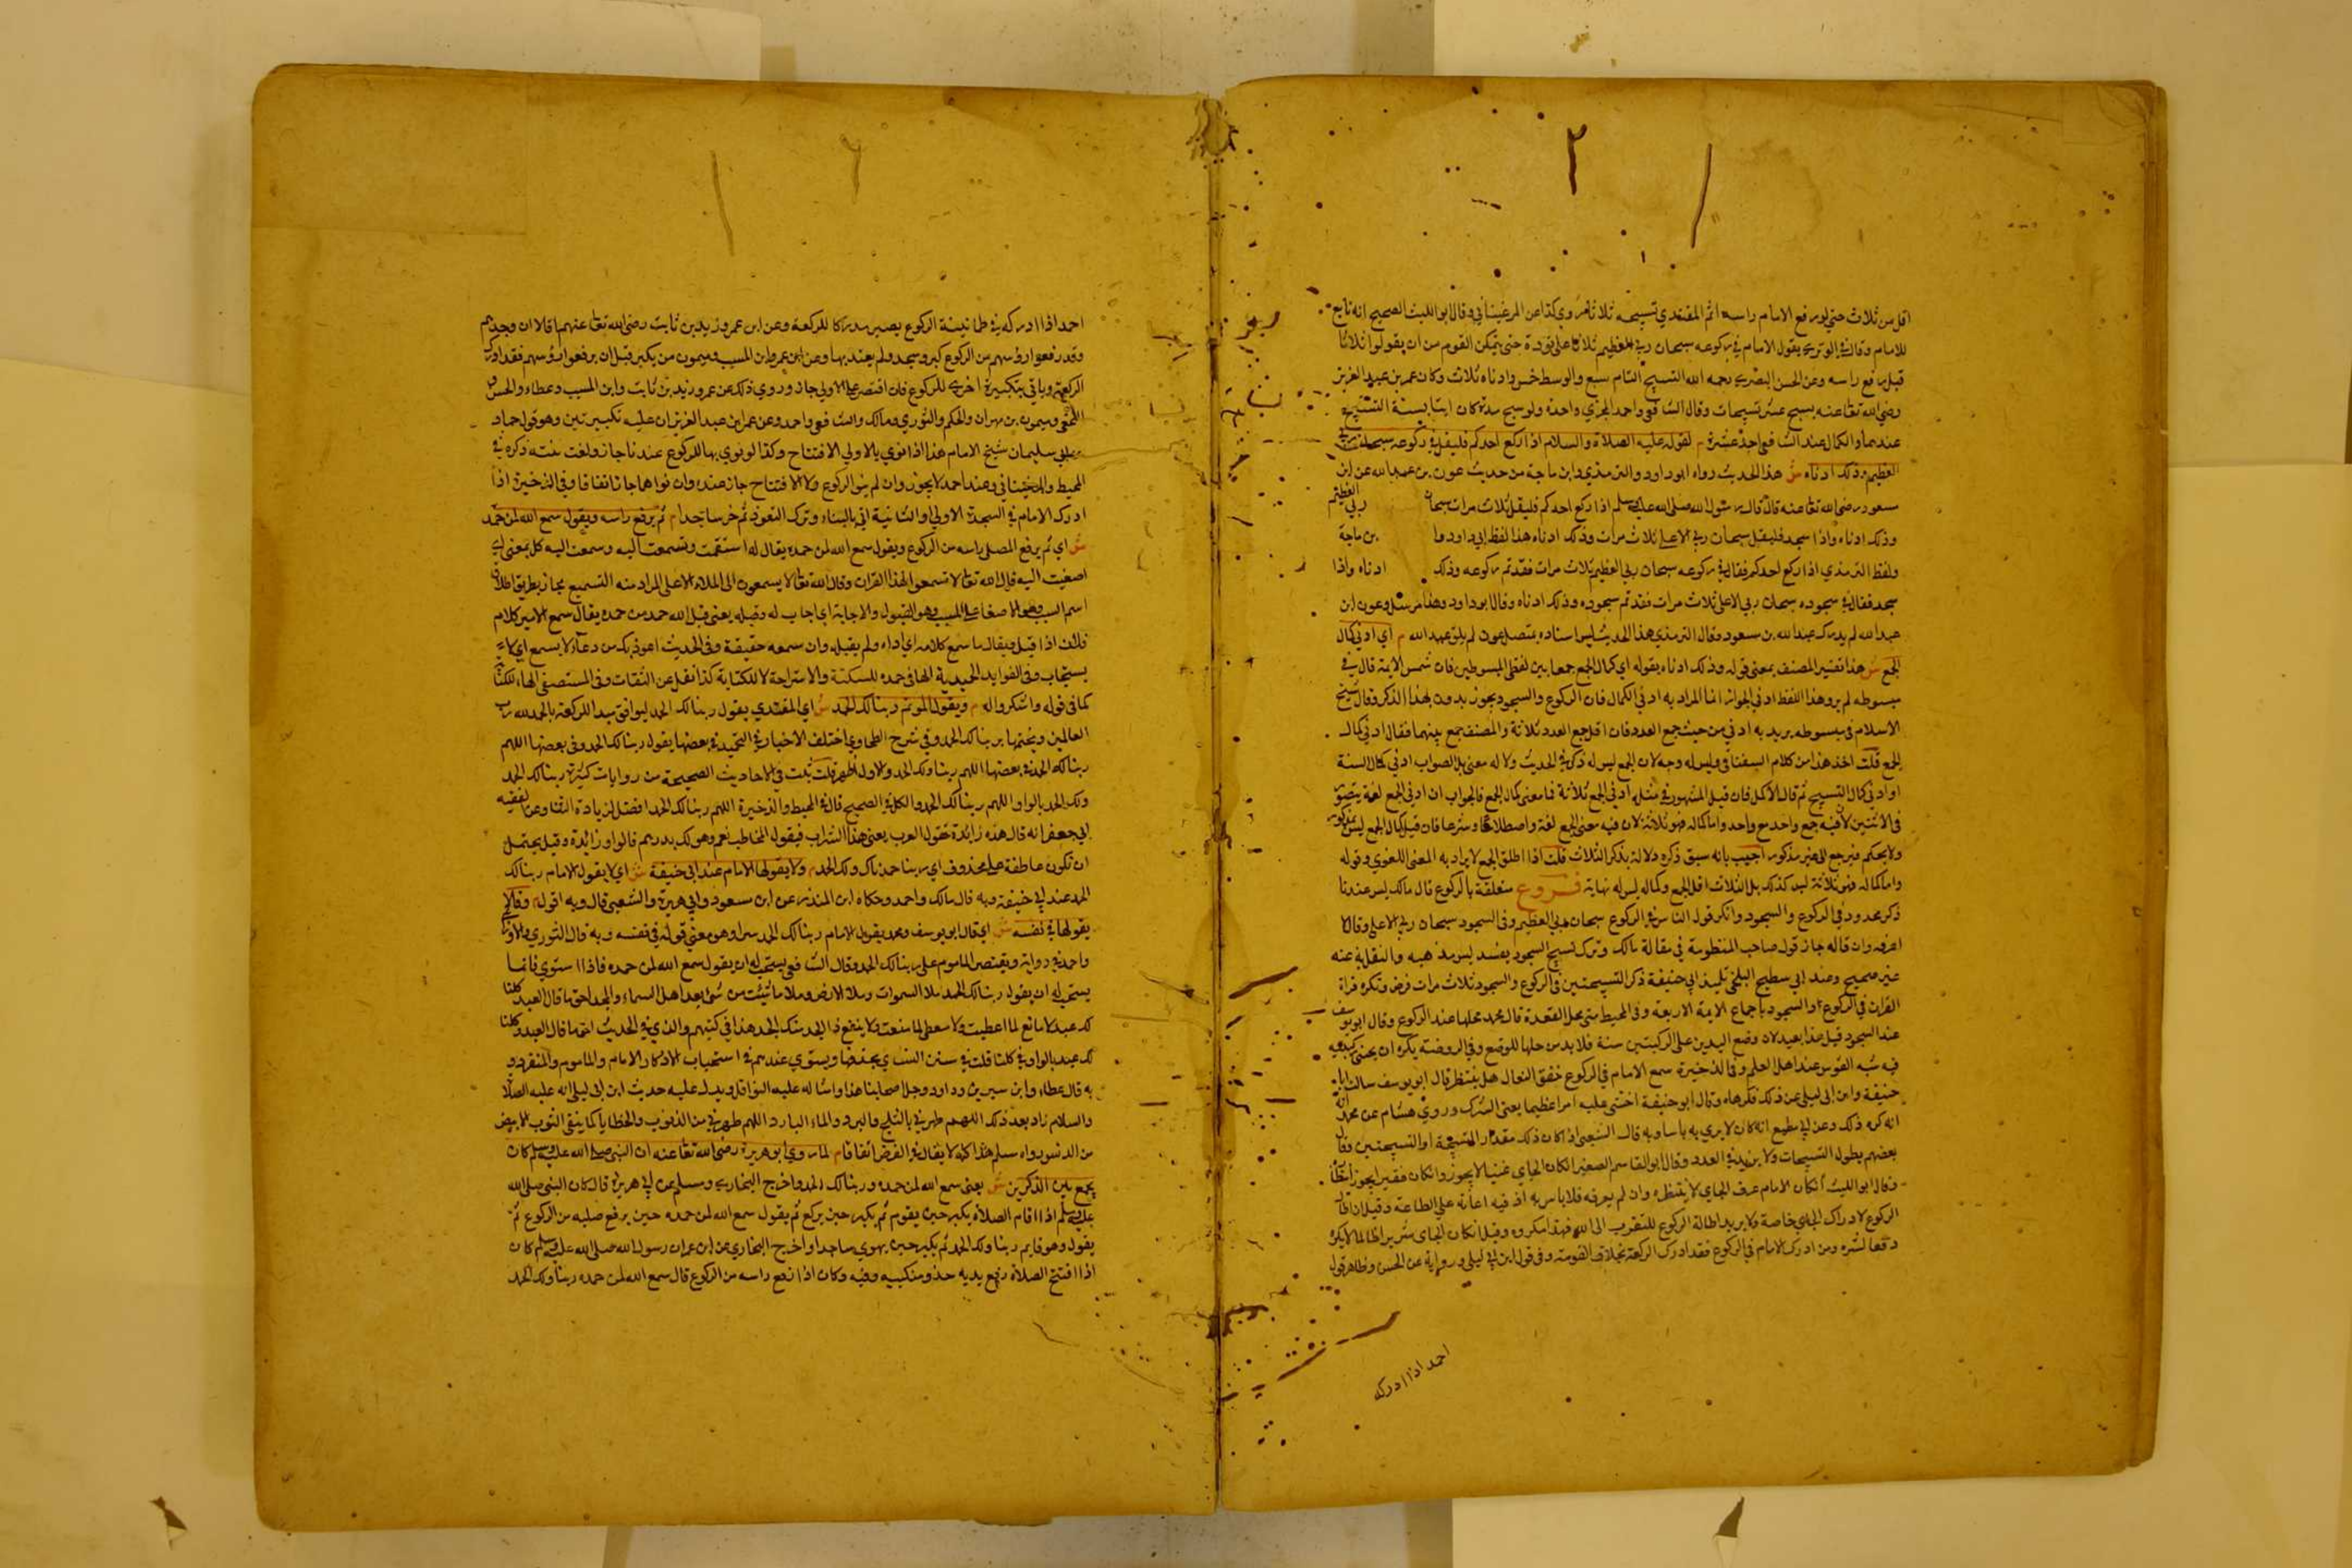 اقل من ثلاث حتى لو رفع الامام راسه اتم المقتدي تسبيحه ثلاثا مروي كذا عن المرغيناني وقال ابو الليث الصحيح انه تابع
للامام وقال في الوتري يقول الامام في ركوعه سبحان ربي العظيم ثلاثا على تؤدة حتى يتمكن القوم من ان يقولوا ثلاثا
قبل رفع راسه وعن الحسن البصري رحمه الله التسبيح التام سبع والوسط خمس وادناه ثلاث وكان عمر بن عبد العزيز
رضي الله تعا عنه يسبح عشر تسبيحات وقال الشافعي واحمد المجزي واحدة ولو سبح مرة كان ايتا بسنة التسبيح
عندهما والكمال عند الشافعي احد عشرة م لقوله عليه الصلاة والسلام اذا ركع احدكم فليقل في ركوعه سبحان ربي
العظيم وذلك ادناه ش هذا الحديث رواه ابو داود والترمذي وابن ماجة من حديث عون بن عبد الله عن ابن
مسعود رضي الله تعا عنه قال قال رسول الله صلى الله عليه وسلم اذا ركع احدكم فليقل ثلاث مرات سبحان ربي العظيم
وذلك ادناه واذا سجد فليقل سبحان ربي الاعلى ثلاث مرات وذلك ادناه هذا لفظ ابي داود وما بن ماجة
ولفظ الترمذي اذا ركع احدكم فقال في ركوعه سبحان ربي العظيم ثلاث مرات فقد تم ركوعه وذلك ادناه واذا
سجد فقال في سجوده سبحان ربي الاعلى ثلاث مرات فقد تم سجوده وذلك ادناه وقال ابو داود وهذا مرسل وعون ابن
عبد الله لم يدرك عبد الله بن مسعود وقال الترمذي هذا الحديث ليس اسناده بمتصل عون لم يلق عبد الله م اي ادنى كمال
الجمع ش هذا تفسير المصنف بمعنى قوله وذلك ادناه بقوله اي كمال الجمع جمعا بين لفظي المبسوطين فان شمس الايمة قال في
مبسوطه لم يرو هذا اللفظ ادنى الجواز انما المراد به ادنى الكمال فان الركوع والسجود يجوز بدون هذا الذكر وقال شيخ
الاسلام في مبسوطه يريد به ادنى من حيث جمع العدد فان اقل جمع العدد ثلاثة والمصنف جمع بينهما فقال ادنى كمال
الجمع قلت اخذ هذا من كلام السغناقي وليس له وجه لان الجمع ليس له ذكر في الحديث ولا له معنى بل الصواب ادنى كمال السنة
او ادنى كمال التسبيح ثم قال الاكمل فان قيل المشهور في مثله ادنى الجمع ثلاثة فما معنى كمال الجمع فالجواب ان ادنى الجمع لغة يتصور
في الاثنين لان فيه جمع واحد مع واحد واما كماله فهو ثلاثة لان فيه معنى الجمع لغة واصطلاحا وشرعا فان قيل كمال الجمع ليس بمذكور
ولا يحكم فيرجع الى غير مذكور اجيب بانه سبق ذكره دلالة بذكر الثلاث قلت اذا اطلق الجمع لا يراد به المعنى اللغوي وقوله
واما كماله فهو ثلاثة ليس كذلك بل الثلاث اقل الجمع وكماله ليس له نهاية فروع متعلقة بالركوع قال مالك ليس عندنا
ذكر محدود في الركوع والسجود وانكر قول الناس في الركوع سبحان ربي العظيم وفي السجود سبحان ربي الاعلى وقال لا
اعرفه وان قاله جاز قول صاحب المنظومة في مقالة مالك وترك تسبيح السجود يفسد ليس مذهبه والنقل به عنه
غير صحيح وعند ابي مطيع البلخي تلميذ ابي حنيفة ذكر التسبيحتين في الركوع والسجود ثلاث مرات فرض وتكره قراة
القران في الركوع او السجود باجماع الايمة الاربعة وفي المحيط متى محل القعدة قال محمد محلها عند الركوع وقال ابو يوسف
عند السجود قيل هذا بعيد لان وضع اليدين على الركبتين سنة فلا بد من حلها للوضع وفي الروضة يكره ان يحنى ركبتيه
فيه شبه القوس عند اهل العلم وفي الذخيرة سمع الامام في الركوع خفق النعال هل ينتظر قال ابو يوسف سالت ابا
حنيفة وابن ابي ليلى عن ذلك فكرهاه وقال ابو حنيفة اخشى عليه امرا عظيما يعني الشرك وروي هشام عن محمد انه
انه كره ذلك وعن ابي مطيع انه كان لا يرى به باسا وبه قال الشعبي اذا كان ذلك مقدار التسبيحة او التسبيحتين وقال
بعضهم يطول التسبيحات ولا يزيد في العدد وقال ابو القاسم الصغير ان كان الجاي غنيا لا يجوز وان كان فقير يجوز انتظاره
وقال ابو الليث ان كان الامام عرف الجاي لا ينتظره وان لم يعرفه فلا باس به اذ فيه اعانة على الطاعة وقيل ان اطال
الركوع لادراك الجاي خاصة ولا يريد اطالة الركوع للتقرب الى الله فهذا مكروه وقيل ان كان الجاي شريرا ظالما لا يكره
دفعا لشره ومن ادرك الامام في الركوع فقد ادرك الركعة بخلاف القومة وفي قول ابن ابي ليلى ورواية عن الحسن وظاهر قول
احمد اذا ادركه
احمد اذا ادركه في طمانينة الركوع يصير مدركا للركعة وعن ابن عمر وزيد بن ثابت رضي الله تعا عنهم قالا ان وجدهم
وقد رفعوا رؤسهم من الركوع كبر وسجد ولم يعتد بها وعن ابن عمر وابن المسيب وميمون من يكبر قبل ان يرفعوا رؤسهم فقد ادرك
الركعة وياتي بتكبيرة اخرى للركوع فان اقتصر على الاولى جاز وروي ذلك عن عمر وزيد بن ثابت وابن المسيب وعطاء والحسن و
النخعي وميمون بن مهران والحكم والثوري ومالك والشافعي واحمد وعن عمر ابن عبد العزيز ان عليه تكبيرتين وهو قول حماد
بن ابي سليمان شيخ الامام هذا اذا نوى بالاولى الافتتاح وكذا لو نوى بها للركوع عندنا جاز ولغت نيته ذكره في
المحيط والمرغيناني وعند احمد لا يجوز وان لم ينو الركوع ولا الافتتاح جاز عنده وان نواهما جاز اتفاقا وفي الذخيرة اذا
ادرك الامام في السجدة الاولى او الثانية اتى بالثناء وترك التعوذ ثم خر ساجدا م ثم يرفع راسه ويقول سمع الله لمن حمده
ش اي ثم يرفع المصلي راسه من الركوع ويقول سمع الله لمن حمده يقال له استمعت وتسمعت اليه وسمعت اليه كل بمعنى اي
اصغيت اليه قال الله تعالى لا تسمعوا لهذا القران وقال الله تعالى لا يسمعون الى الملاء الاعلى المراد منه التسميع مجاز بطريق اطلاق
اسم السبب وهو الاصغاء على المسبب وهو القبول والاجابة اي اجاب له وقبله يعني قبل الله حمد من حمده يقال سمع الامير كلام
فلان اذا قبل ويقال ما سمع كلامه اي اداه ولم يقبله وان سمعه حقيقة وفي الحديث اعوذ بك من دعاء لا يسمع اي لا
يستجاب وفي الفوايد الحميدية الهاء في حمده للسكتة والاستراحة لا للكناية كذا نقل عن الثقات وفي المستصفى الهاء للكناية
كما في قوله واشكروا له م ويقول الموتم ربنا لك الحمد ش اي المقتدي يقول ربنا لك الحمد ليوافق مبدا الركعة بالحمد لله رب
العالمين ويختمها بربنا لك الحمد وفي شرح الطحاوي اختلف الاخبار في التحميد في بعضها يقول ربنا لك الحمد وفي بعضها اللهم
ربنا لك الحمد وفي بعضها اللهم ربنا ولك الحمد والاول اظهر قلت ثبت في الاحاديث الصحيحة من روايات كثيرة ربنا لك الحمد
ولك الحمد بالواو اللهم ربنا لك الحمد والكل في الصحيح قال في المحيط والذخيرة اللهم ربنا لك الحمد افضل لزيادة الثنا وعن الفقيه
ابي جعفر انه قال هذه زائدة تقول العرب يعني هذا الشراب فيقول المخاطب نعم وهو لك بدرهم فالواو زائدة وقيل يحتمل
ان تكون عاطفة على محذوف اي ربنا حمدناك ولك الحمد م ولا يقولها الامام عند ابي حنيفة ش اي لا يقول الامام ربنا لك
الحمد عند ابي حنيفة وبه قال مالك واحمد وحكاه ابن المنذر عن ابن مسعود وابي هريرة والشعبي قال وبه اقول م وقالا
يقولها في نفسه ش اي قال ابو يوسف ومحمد يقول الامام ربنا لك الحمد سرا وهو معنى قوله في نفسه وبه قال الثوري والاوزاعي
واحمد في رواية ويقتصر الماموم على ربنا لك الحمد وقال الشافعي يستحب له ان يقول سمع الله لمن حمده فاذا استوى قائما
يستحب له ان يقول ربنا لك الحمد ملا السموات وملا الارض وملا ما شئت من شئ بعد اهل السماء والمجد احق ما قال العبد كلنا
لك عبد لا مانع لما اعطيت ولا معطي لما منعت ولا ينفع ذا الجد منك الجد هذا في كتبهم والذي في الحديث احق ما قال العبد وكلنا
لك عبد بالواو في كلنا قلت في سنن النسائي بحذفها ويستوي عندهم في استحباب الاذكار الامام والماموم والمنفرد و
به قال عطاء وابن سيرين وداود وجل اصحابنا هذا وامثاله على النوافل ويدل عليه حديث ابن ابي ليلى انه عليه الصلاة
والسلام زاد بعد ذلك اللهم طهرني بالثلج والبرد والماء البارد اللهم طهرني من الذنوب والخطايا كما ينقى الثوب الابيض
من الدنس رواه مسلم هذا كله لا يقال في الفرض اتفاقا م لما روي ابو هريرة رضي الله تعا عنه ان النبي صلى الله عليه وسلم كان
يجمع بين الذكرين ش يعني سمع الله لمن حمده وربنا لك الحمد واخرج البخاري ومسلم عن ابي هريرة قال كان النبي صلى الله
عليه وسلم اذا اقام الصلاة يكبر حين يقوم ثم يكبر حين يركع ثم يقول سمع الله لمن حمده حين يرفع صلبه من الركوع ثم
يقول وهو قايم ربنا ولك الحمد ثم يكبر حين يهوي ساجدا واخرج البخاري عن ابن عمر ان رسول الله صلى الله عليه وسلم كان
اذا افتتح الصلاة رفع يديه حذو منكبيه وفيه وكان اذا رفع راسه من الركوع قال سمع الله لمن حمده ربنا ولك الحمد